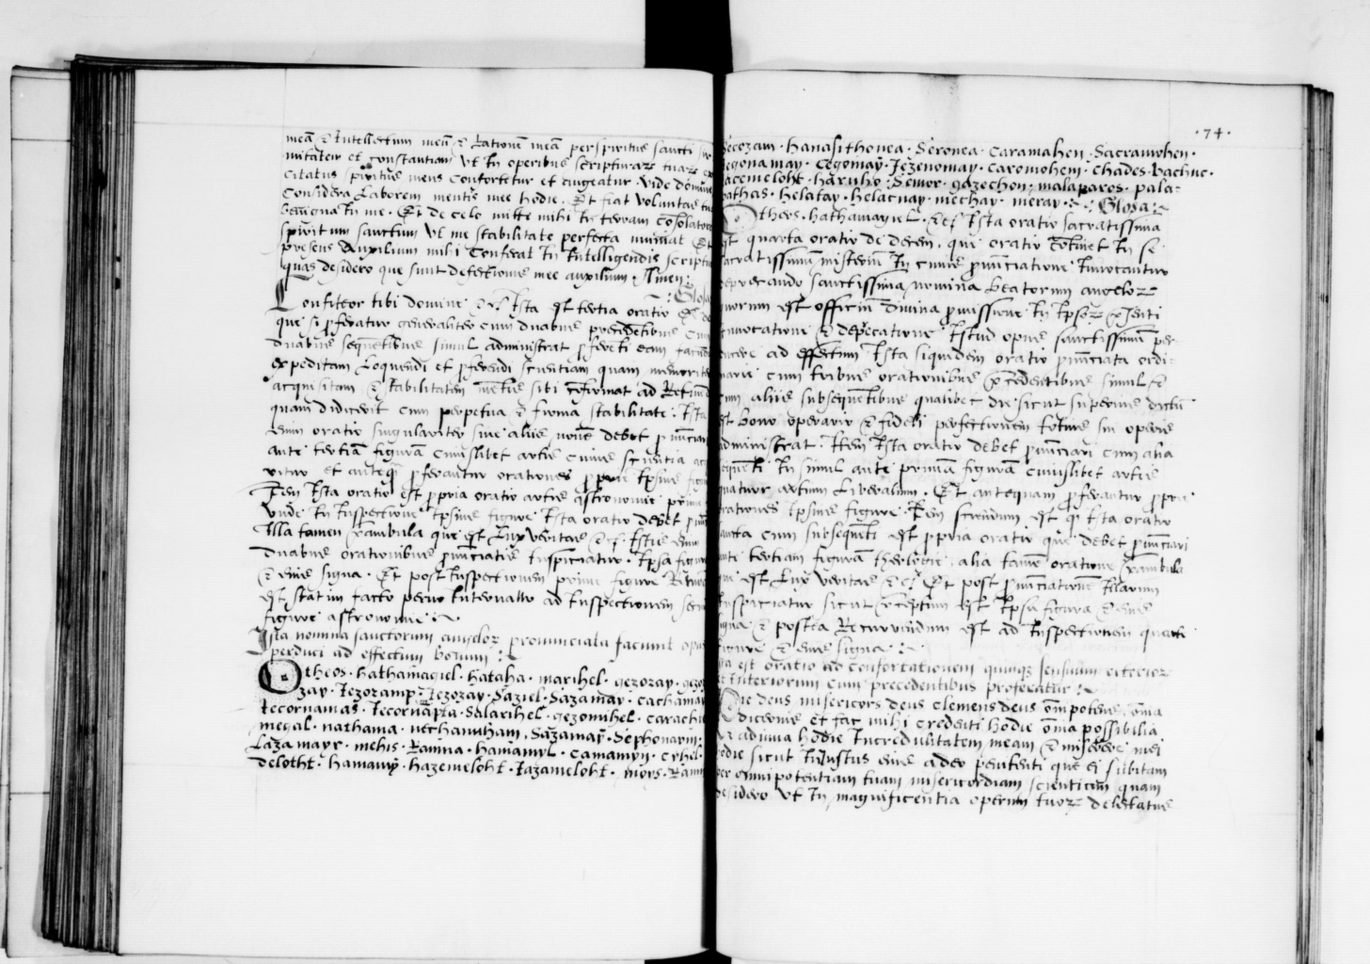 meā & Intellectum meū & Rationē meā per spiritus sancti
nitatem et constantiam vt In operibus scripturarz tuarz
citatus spūs meus Confortetur et augeatur. vide domine
Considera Laborem mentis mee hodie. Et fiat voluntas
benigna In me. Et de celo mitte mihi In terram Cōsolatorē
spiritum sanctum vt me stabilitate perfecta muniat Et
presens Auxilium mihi Conferat In Intelligendis scriptu
quas desidero que sunt defectionis mee auxilium. Amen.
Glosa
Confiteor tibi domine & cet. Ista est tertia oratio
que si pferatur generaliter cum duabus precedētibus
duabus sequētibus simul administrat pferēti eam facūdi
expeditam Loquendi et pferendi scientiam quam memorite
acquisitam & stabilitatem mētis sibi cōfirmat ad Retinēd
quam didicerit cum perpetua & firma stabilitate. Ista
enim oratio singulariter sine aliis debet pnunciari
ante tertiā figurā cuiuslibet artis cuius scientia
et anteq pferantur orationes pprie Ipsius figu
Item Ista oratio est ppria oratio artis astronomie
vnde In Inspectione Ipsius figure Ista oratio debet
Illa tamen preambula que est Lux veritas & cet. Istis enim
duabus orationibus pnunciatis Inspiciatur Ipsa figura
& eius signa. Et post Inspectionem prime figure
est statim facto paruo Interuallo ad Inspectionem
figure astronomie.
Ista nomina sanctorum angelorz pronunciata faciunt opus
perduci ad effectum bonum:
Otheos. hathamagiel. hataha. marihel. gezozay.
zay. Iezoramp. Iezozay. Saziel. Sazamay. cachamay
Iecornamas. Iecornāpta. Salarihel. gezomihel.
megal. nathama. nechamiham. Sazamay. Sephonayn.
Lazamayr. mehis. Ramna. hamamyl. Camamyn. Crhel.
Delotht. hamamy. hazemeloht. Iazameloht. moys. Ram
.74.
Secozam. hanasithonea. Seronea. caramahen. Sacramohen.
Segonamay. Cegomay. Iezenomay. caromohem. Chades. bachne.
Iacemeloht. haruho. Semor. gazechon. malaparos. pala-
pathas. helatay. helacnay. mechay. meray. Glosa
Otheos. hathamagiel. & cet. Ista oratio sacratissima
est quarta oratio de decem. que oratio cōtinet In se
sacratissimum misterium In cuius pnunciatione Inuocantur
deprecando sanctissima nomina beatorum angelorz
quorum est officium diuina pmissione In Ipsorz existenti
Inuocatione & deprecatione Istud opus sanctissimum per
ducere ad effectum Ista siquidem oratio pnunciata ordi-
narie cum tribus orationibus precedentibus simul &
cum aliis subsequētibus qualibet die sicut superius dictū
est bono operario & fideli perfectionem totius sui operis
administrat. Item Ista oratio debet pnunciari cum alia
sequēti In simul ante primā figurā cuiuslibet artis
quatuor artium Liberalium. Et antequam pferantur pprie
orationes Ipsius figure. Item sciendum est q Ista oratio
quarta cum subsequēti est ppria oratio que debet pnunciari
ante tertiam figurā theologie. alia tamē oratione preambula
que est Lux veritas & cet. Et post pnunciationē Illarum
Inspiciatur sicut preceptum est Ipsa figura & eius
signa & postea Recurrendum est ad Inspectionem quarte
figure & eius signa.
Ista est oratio ad confortationem quinque sensuum exterior
et Interiorum cum precedentibus proferatur:
deus misericors deus clemens deus omipotens. ōnia
dicens et fac mihi credenti hodie ōnia possibilia
et adiuua hodie Incredulitatem meam & miserere mei
hodie sicut Iniustus eius adeo penitenti que ei subitam
per omnipotentiam tuam misericordiam scienticiū quam
desidero vt In magnificentia operum tuorz delectatus